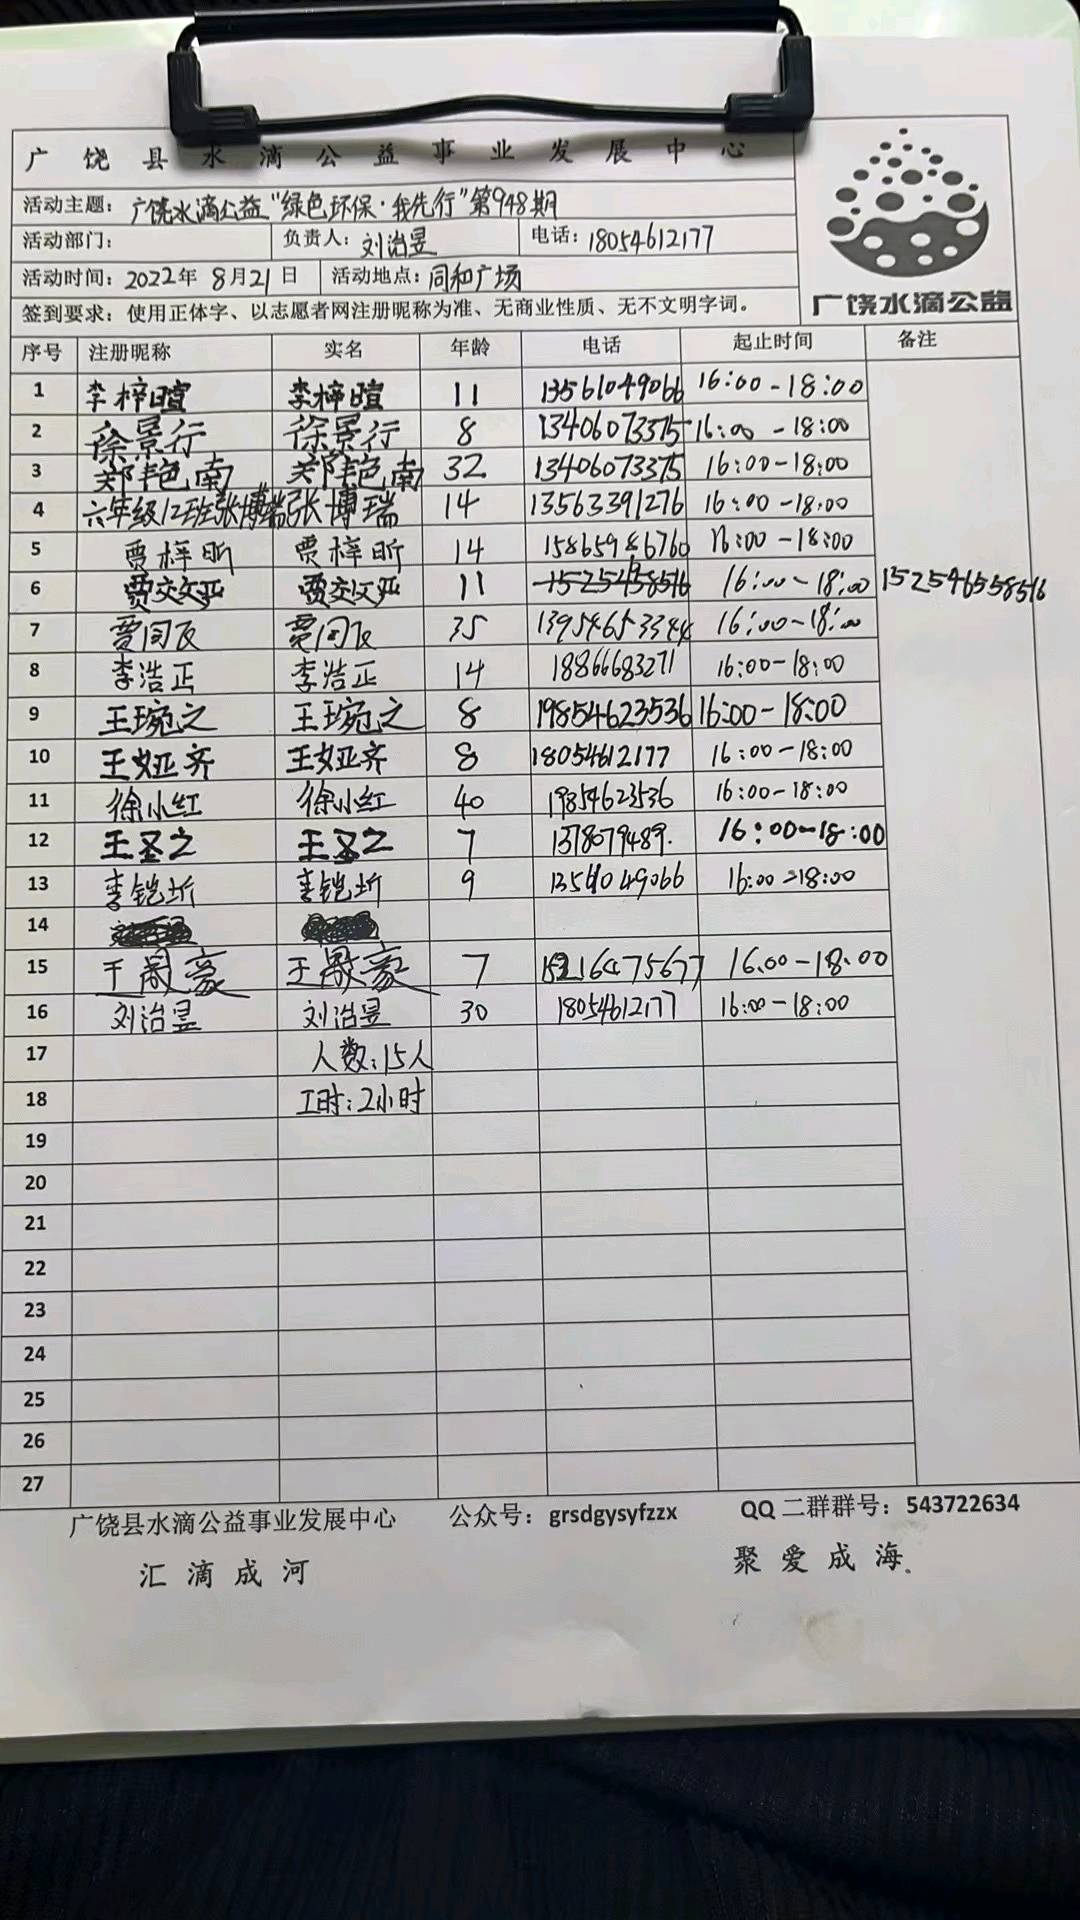 广饶县水滴公益事业发展中心
活动主题：广饶水滴公益“绿色环保·我先行”第948期
活动部门： 负责人：刘治昱 电话：18054612177
活动时间：2022年8月21日 活动地点：同和广场
签到要求：使用正体字、以志愿者网注册昵称为准、无商业性质、无不文明字词。
广饶水滴公益
序号 注册昵称 实名 年龄 电话 起止时间 备注
1 李梓暄 李梓暄 11 13561049066 16:00-18:00
2 徐景行 徐景行 8 13406073375 16:00-18:00
3 郑艳南 郑艳南 32 13406073375 16:00-18:00
4 六年级12班张博瑞 张博瑞 14 13563391276 16:00-18:00
5 贾梓昕 贾梓昕 14 15865986760 16:00-18:00
6 11 16:00-18:00 152546558516
7 35 13954653344 16:00-18:00
8 李浩正 李浩正 14 18866683271 16:00-18:00
9 王琬之 王琬之 8 19854623536 16:00-18:00
10 王娅齐 王娅齐 8 18054612177 16:00-18:00
11 徐小红 徐小红 40 19854623536 16:00-18:00
12 王圣之 王圣之 7 16:00-18:00
13 李铠圻 李铠圻 9 16:00-18:00
14
15 7 16.00-18.00
16 刘治昱 刘治昱 30 18054612177 16:00-18:00
17 人数：15人
18 工时：2小时
19
20
21
22
23
24
25
26
27
广饶县水滴公益事业发展中心 公众号：grsdgysyfzzx QQ二群群号：543722634
汇滴成河 聚爱成海.